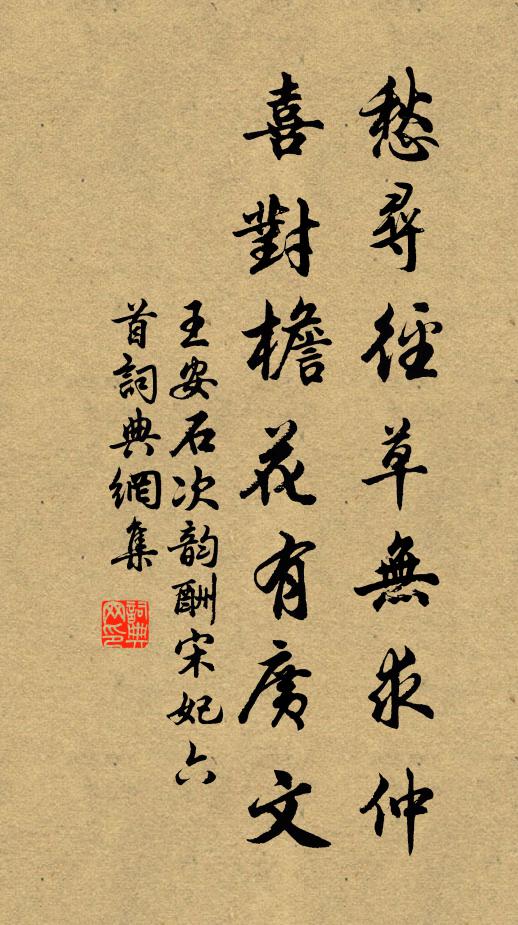 愁尋徑草無求仲
喜對檐花有廣文
王安石次韵酬宋妃六
首詞典網集
詞典
网印